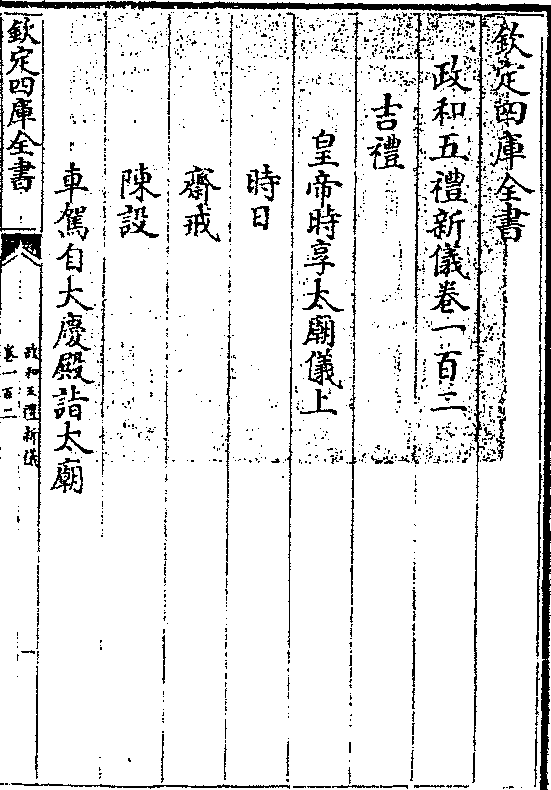 欽定四庫全書
政和五禮新儀卷一百二
吉禮
皇帝時享太廟儀上
時日
齋戒
陳設
車駕自大慶殿詣太廟
欽定四庫全書
政和五禮新儀
卷一百二
一